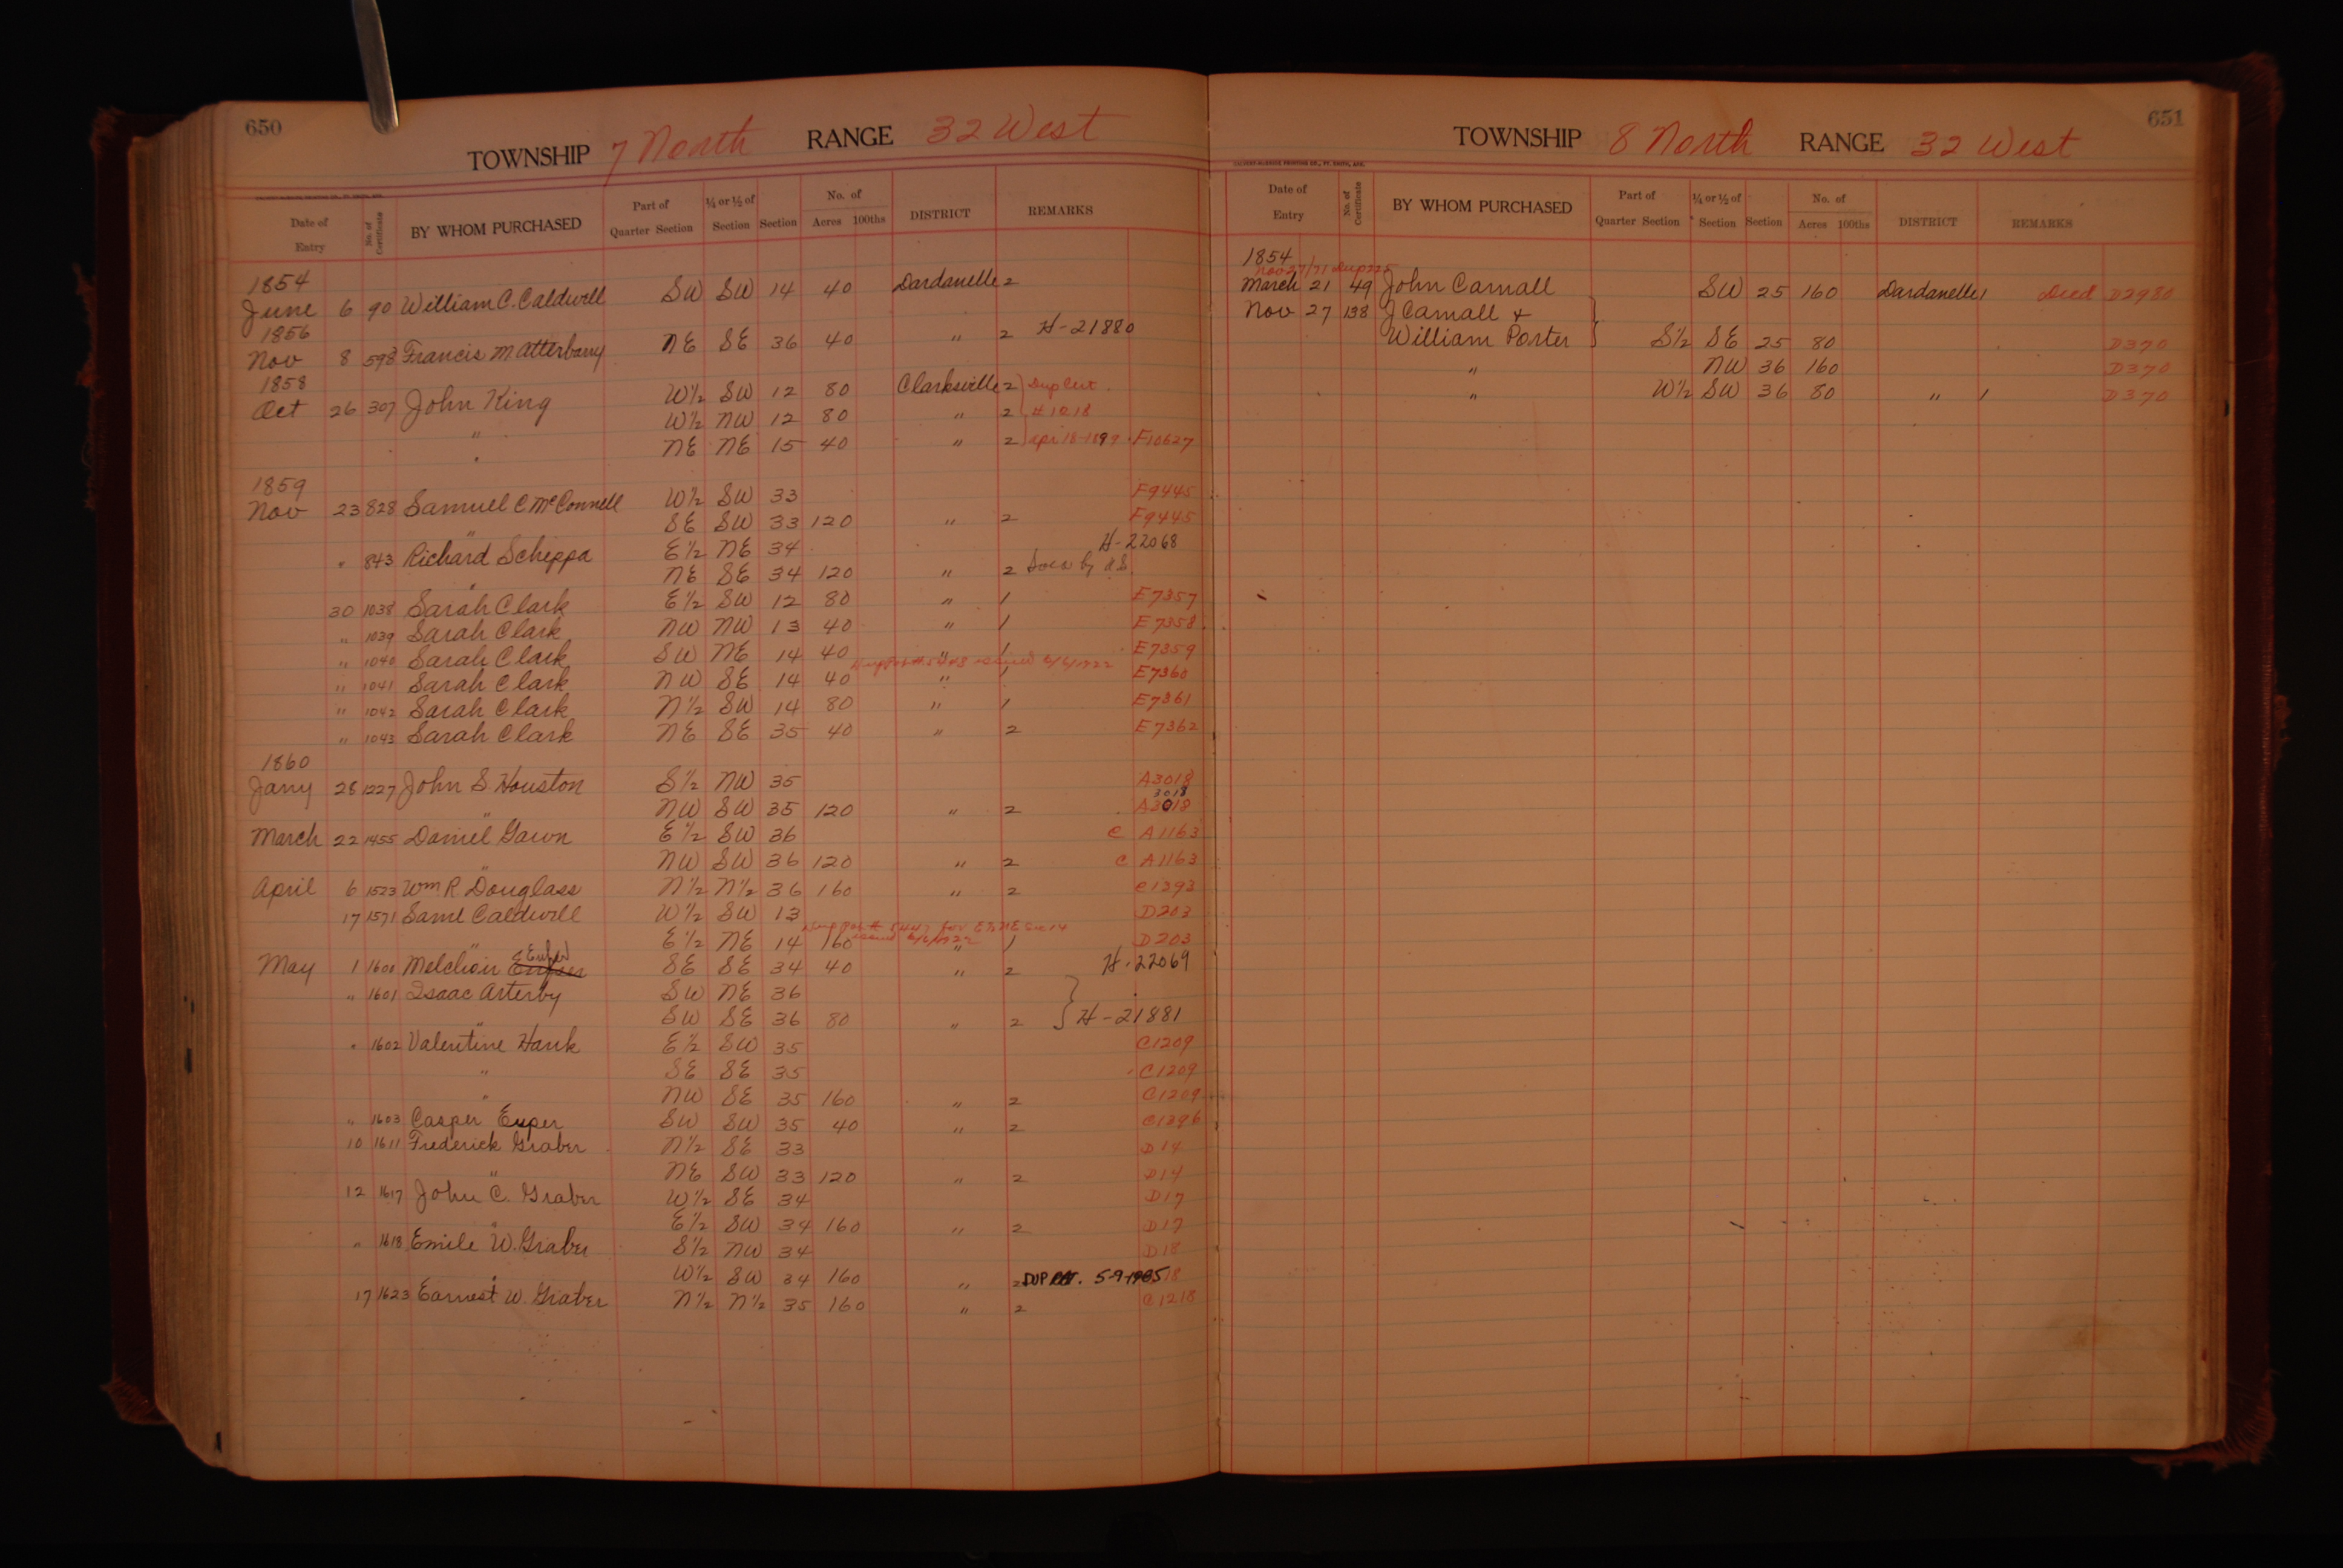 650
TOWNSHIP 7 North RANGE 32 West
Date of Entry No. of Certificate BY WHOM PURCHASED Part of Quarter Section ¼ or ½ of Section Section No. of Acres 100ths DISTRICT REMARKS
1854
June 6 90 William C. Caldwell SW SW 14 40 Dardanelle 2
1856
Nov 8 598 Francis M Atterbarry NE SE 36 40 " 2 H-21880
1858
Oct 26 307 John King W½ SW 12 80 Clarksville 2 Dup Cert.
" W½ NW 12 80 " 2 # 1218
" NE NE 15 40 " 2 Apr 18-1899 F10627
1859
Nov 23 828 Samuel C McConnell W½ SW 33 F9445
" SE SW 33 120 " 2 F9445
" 843 Richard Schippa E½ NE 34 H-22068
" NE SE 34 120 " 2 by
30 1038 Sarah Clark E½ SW 12 80 " 1 E7357
" 1039 Sarah Clark NW NW 13 40 " 1 E7358
" 1040 Sarah Clark SW NE 14 40 " 1 E7359
issued
" 1041 Sarah Clark NW SE 14 40 " 1 E7360
" 1042 Sarah Clark N½ SW 14 80 " 1 E7361
" 1043 Sarah Clark NE SE 35 40 " 2 E7362
1860
Jany 28 1227 John S Houston S½ NW 35 A3018
3018
" NW SW 35 120 " 2 A3018
March 22 1455 Daniel Gawn E½ SW 36 C A1163
" NW SW 36 120 " 2 C A1163
April 6 1523 Wm R Douglass N½ N½ 36 160 " 2 C1293
17 1571 Saml Caldwell W½ SW 13 D203
for E½ NE Sec 14
issued
" E½ NE 14 160 " 1 D203
May 1 1600 Melchoir SE SE 34 40 " 2 H-22069
" 1601 Isaac Arterby SW NE 36
" SW SE 36 80 " 2 H-21881
" 1602 Valentine Hauk E½ SW 35 C1209
" SE SE 35 C1209
" NW SE 35 160 " 2 C1209
" 1603 Casper Euper SW SW 35 40 " 2 C1396
10 1611 Frederick Graber N½ SE 33 D14
" NE SW 33 120 " 2 D14
12 1617 John C. Graber W½ SE 34 D17
" E½ SW 34 160 " 2 D17
" 1618 Emile W. Graber S½ NW 34 D18
" W½ SW 34 160 " 2 DUP PAT. 5-9-1905 18
17 1623 Earnest W. Graber N½ N½ 35 160 " 2 C1218
651
TOWNSHIP 8 North RANGE 32 West
CALVERT-McBRIDE PRINTING CO., FT. SMITH, ARK.
Date of Entry No. of Certificate BY WHOM PURCHASED Part of Quarter Section ¼ or ½ of Section Section No. of Acres 100ths DISTRICT REMARKS
1854
Nov 27/71 Dup 225
March 21 49 John Carnall SW 25 160 Dardanelle 1 Deed D2980
Nov 27 138 J Carnall +
William Porter S½ SE 25 80 D370
" NW 36 160 D370
" W½ SW 36 80 " 1 D370